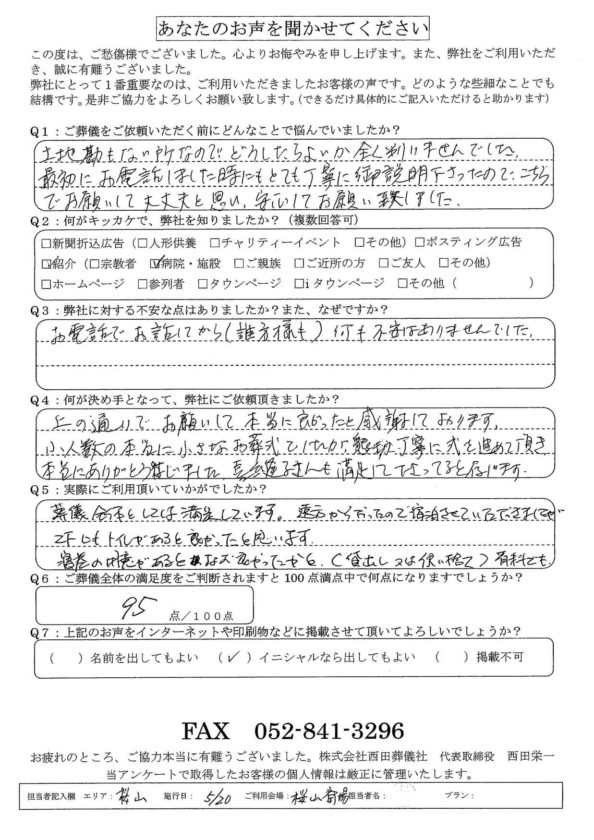 あなたのお声を聞かせてください
この度は、ご愁傷様でございました。心よりお悔やみを申し上げます。また、弊社をご利用いただ
き、誠に有難うございました。
弊社にとって1番重要なのは、ご利用いただきましたお客様の声です。どのような些細なことでも
結構です。是非ご協力をよろしくお願い致します。(できるだけ具体的にご記入いただけると助かります)
Q1：ご葬儀をご依頼いただく前にどんなことで悩んでいましたか？
土地勘もない所なのでどうしたらよいか全く判りませんでした。
最初にお電話しました時にもとても丁寧に御説明下さったので、こちら
でお願いして大丈夫と思い、安心してお願い致しました。
Q2：何がキッカケで、弊社を知りましたか？（複数回答可）
□新聞折込広告（□人形供養　□チャリティーイベント　□その他）□ポスティング広告
☑紹介（□宗教者　☑病院・施設　□ご親族　□ご近所の方　□ご友人　□その他）
□ホームページ　□参列者　□タウンページ　□iタウンページ　□その他（　　　　　）
Q3：弊社に対する不安な点はありましたか？また、なぜですか？
お電話でお話してから(誰方様も)何も不安はありませんでした。
Q4：何が決め手となって、弊社にご依頼頂きましたか？
上の通りで お願いして本当に良かったと感謝しております。
小人数の本当に小さなお葬式でしたが、懇切丁寧に式を進めて頂き
本当にありがとう さんも満足して下さってると存じます。
Q5：実際にご利用頂いていかがでしたか？
葬儀全体としては満足しています。遠方からだったので宿泊させていただきましたが
2Fにもトイレがあると良かったと思います。
の用意があると 良かったかと、(貸出し又は使い捨て)有料でも。
Q6：ご葬儀全体の満足度をご判断されますと100点満点中で何点になりますでしょうか？
95 点/100点
Q7：上記のお声をインターネットや印刷物などに掲載させて頂いてよろしいでしょうか？
（　）名前を出してもよい　（✓）イニシャルなら出してもよい　（　）掲載不可
FAX　052-841-3296
お疲れのところ、ご協力本当に有難うございました。株式会社西田葬儀社　代表取締役　西田栄一
当アンケートで取得したお客様の個人情報は厳正に管理いたします。
担当者記入欄　エリア：桜山　施行日：5/20　ご利用会場：桜山斎場　担当者名：　プラン：